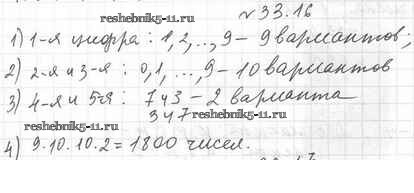 №33.16
reshebnik5-11.ru
1) 1-я цифра: 1, 2, .., 9 - 9 вариантов;
2) 2-я и 3-я: 0, 1, ..., 9 - 10 вариантов
3) 4-я и 5-я: 7 4 3 - 2 варианта
3 4 7
reshebnik5-11.ru
4) 9.10.10.2 = 1800 чисел.